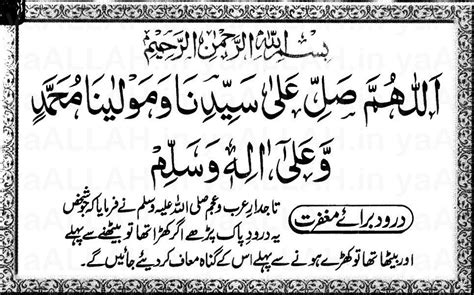 بِسْمِ اللهِ الرَّحْمٰنِ الرَّحِيْمِ
اَللّٰهُمَّ صَلِّ عَلٰى سَيِّدِنَا وَمَوْلٰينَا مُحَمَّدٍ
وَّعَلٰٓى اٰلِهٖ وَسَلِّمْ
تاجدارِ عرب و عجم صلی اللہ علیہ وسلم نے فرمایا کہ جو شخص
درود برائے مغفرت
یہ درودِ پاک پڑھے اگر کھڑا تھا تو بیٹھنے سے پہلے
اور بیٹھا تھا تو کھڑے ہونے سے پہلے اس کے گناہ معاف کر دیئے جائیں گے۔
yaALLAH.in